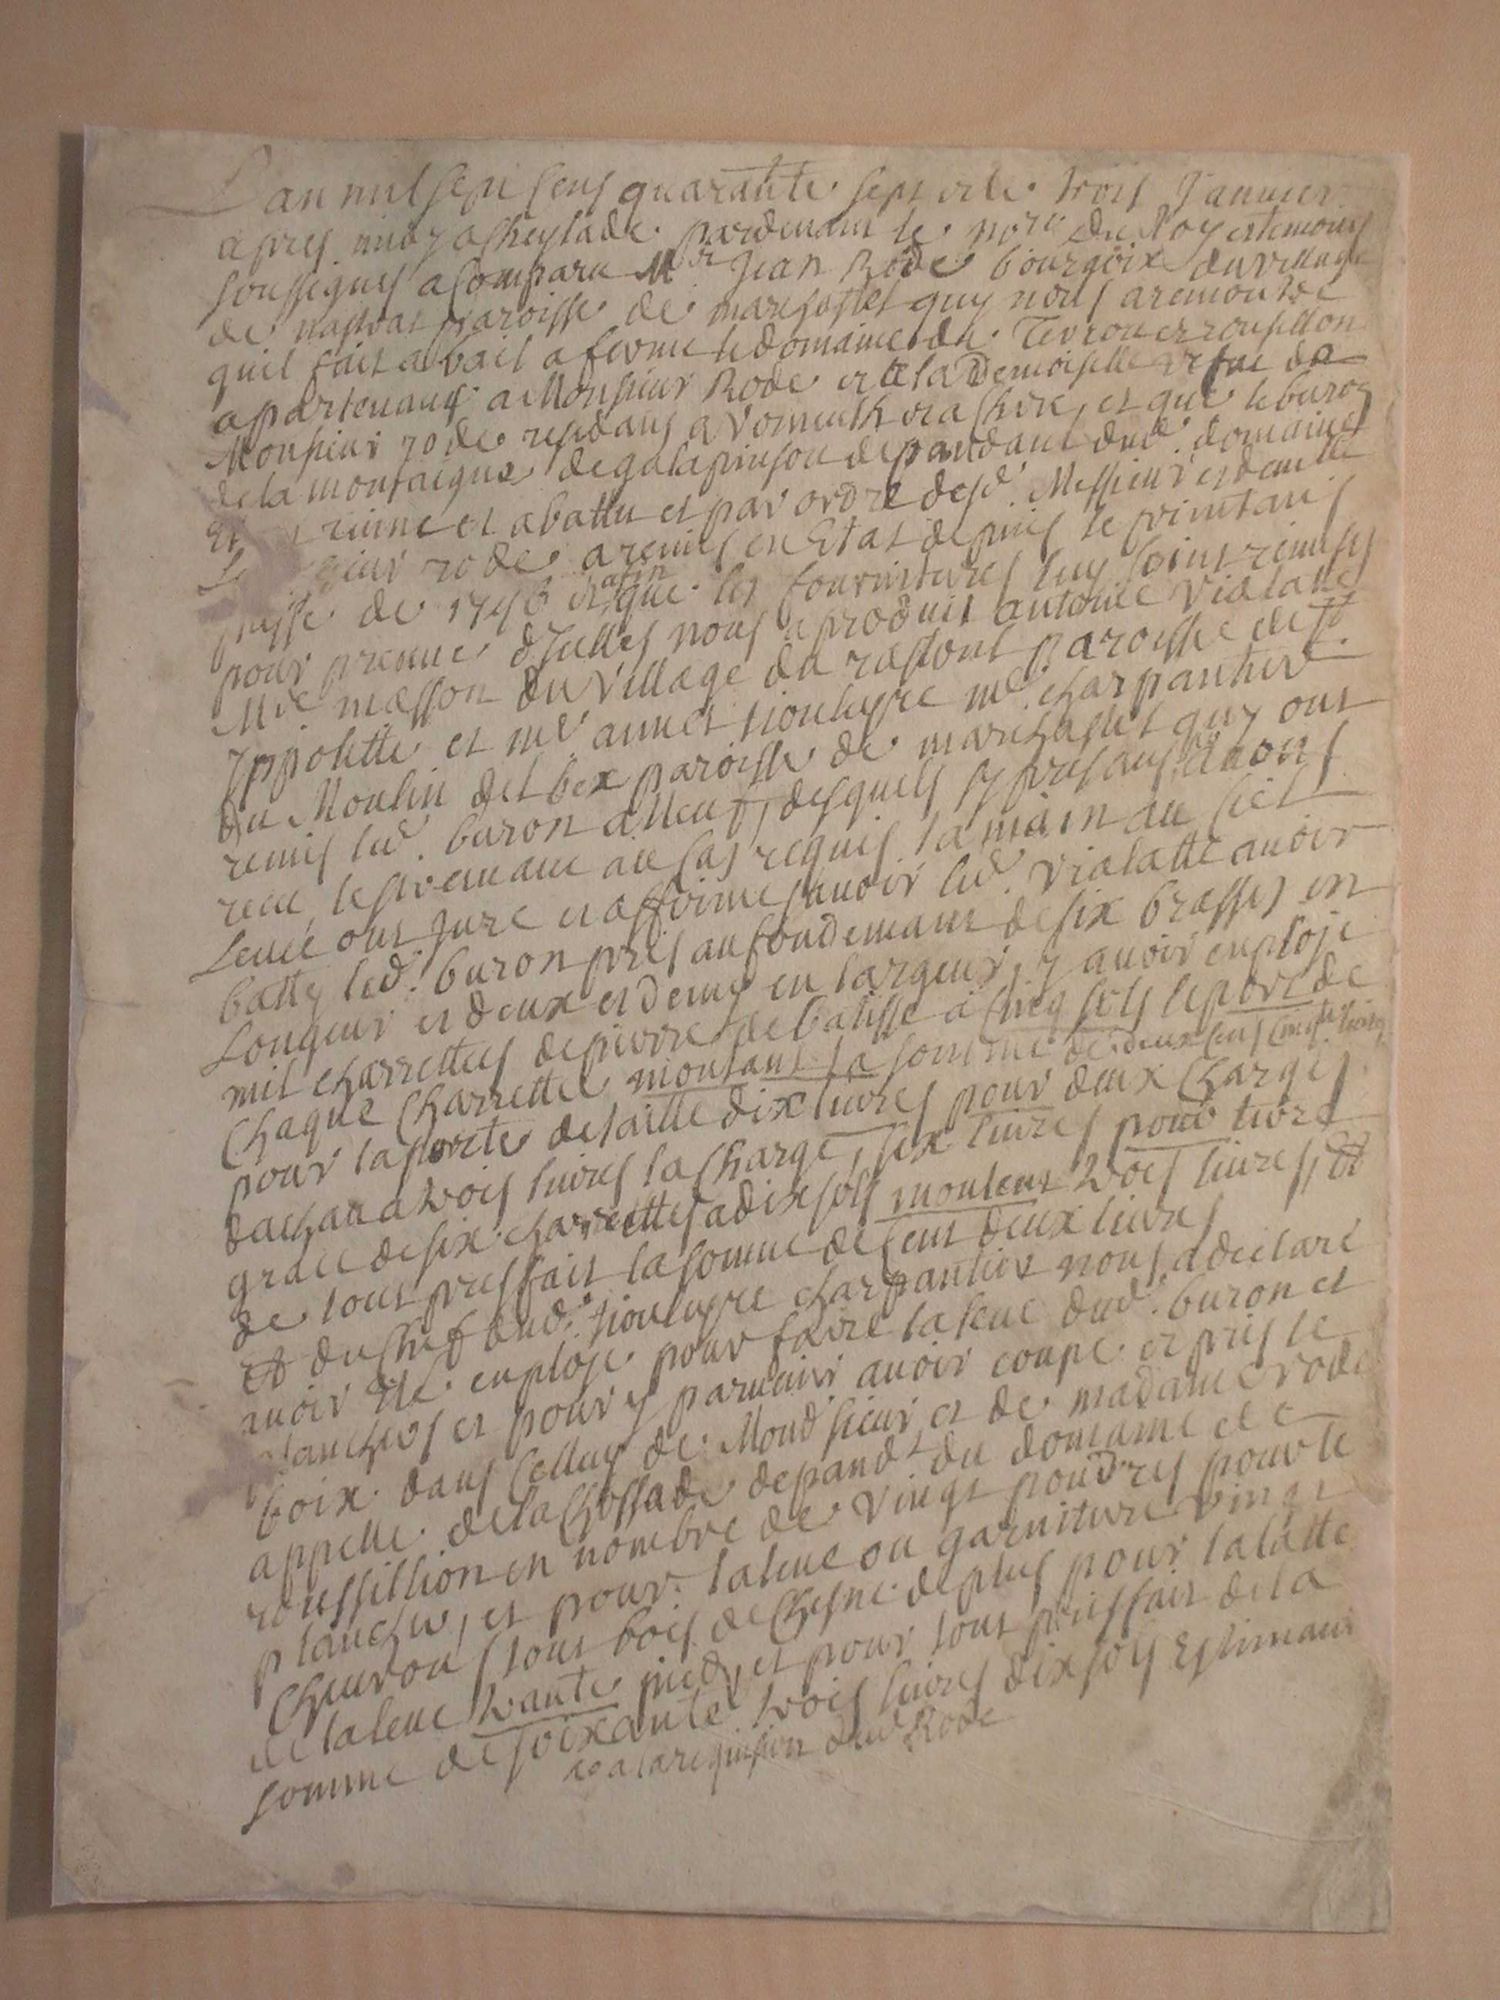 L'an mil sept sens quarante sept et le trois Janvier
apres midy a Cheylade pardevant le nore du Roy et temoins
soussignes a Comparu Mr Jean Rode bourgoix du village
de paroisse de marchastel quy nous a remontré
quil fait a bail a ferme le domaine du Terron et roussillon
apartenans a Monsieur Rode et a la Demoiselle de
Monsieur rode residans a et que le buron
de la montaigne de galapinson depandant dud. domaine
ruine et abattu et par ordre desd. Messieur et demlle
rode a remis en Estat depuis le printans
passé de 1746 et afin que les fournitures luy soint remises
pour preuve d'Icelles nous a produit antoine Vialatte
Mre masson du village du rastoul paroisse de St
Ippolitte et mre annet tiouleyre mre charpantier
du Moulin del bex paroisse de marchastel quy ont
remis led. buron a Neuf, desquels sy presans avons
receu le sermant au Cas requis la main au Ciel
Levée ont Jure et affirme scavoir led. Vialatte avoir
batty led. buron pris au fondemant de six brasses en
Longeur et deux et demy en largeur, y avoir employé
mil charrettes de pierre de batisse a Cinq sols le port de
Chaque Charrette montant la somme de deux Cens Cinqte livres
pour la porte de taille dix livres pour deux Charges
dachau a trois livres la Charge, six livres pour tivre
de six charrettes a dix sols montant trois livres, Et
de tout prisfait la somme de Cent deux livres
Et du Chef dud. tiouleyre charpantier nous a declaré
avoir Eté employé pour faire la teue dud. buron et
planchers et pour y parvenir avoir coupe et pris le
boix dans Celluy de Mond. sieur et de madame rode
appelle de la Chossade depandt du domaine de
roussillion en nombre de vingt poudres pour le
plancher, et pour la teue ou garniture vingt
Chevrons tout bois de Chesne de plus pour la latte
de la teue trante pieds et pour tout prisfait de la
somme de soixante trois livres dix sols Estimant
a la requisition dud. Rode